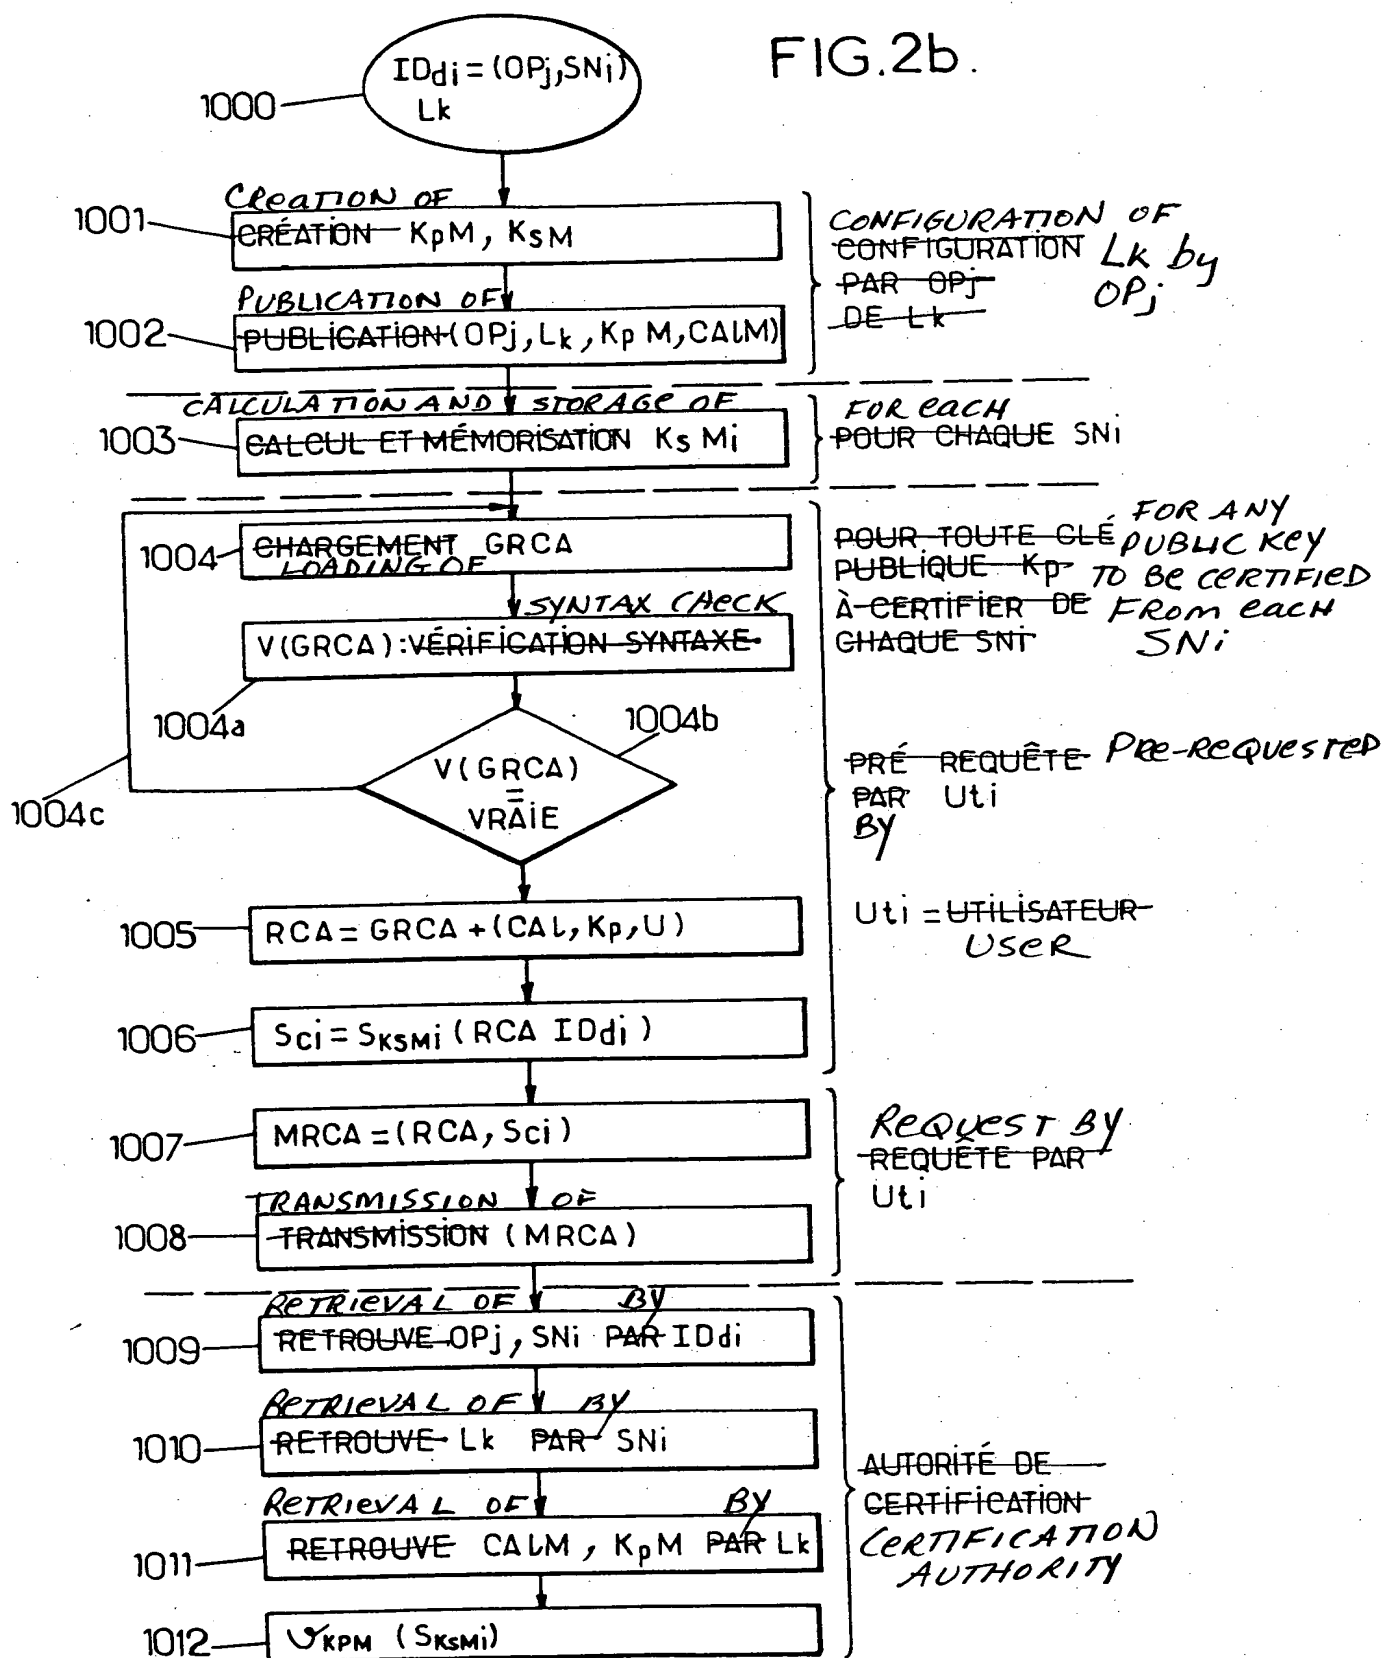 FIG.2b.
IDdi = (OPj,SNi)
Lk
1000
CREATION OF
1001
CRÉATION KpM, KsM
PUBLICATION OF
1002
PUBLICATION (OPj, Lk, KpM, CALM)
CONFIGURATION OF
CONFIGURATION Lk by
PAR OPj OPj
DE Lk
CALCULATION AND STORAGE OF
1003
CALCUL ET MÉMORISATION KsMi
FOR each
POUR CHAQUE SNi
1004
CHARGEMENT GRCA
LOADING OF
SYNTAX CHECK
V(GRCA):VÉRIFICATION SYNTAXE
1004a
1004b
V(GRCA)
=
VRAIE
1004c
POUR TOUTE CLÉ FOR ANY
PUBLIQUE Kp PUBLIC KEY
À CERTIFIER DE TO BE CERTIFIED
CHAQUE SNi FROM each
SNi
PRÉ REQUÊTE PRE-REQUESTED
PAR Uti
BY
Uti = UTILISATEUR
USER
1005
RCA = GRCA + (CAL, Kp, U)
1006
Sci = SKSMi (RCA IDdi)
1007
MRCA = (RCA, Sci)
TRANSMISSION OF
1008
TRANSMISSION (MRCA)
REQUEST BY
REQUÊTE PAR
Uti
RETRIEVAL OF BY
1009
RETROUVE OPj, SNi PAR IDdi
RETRIEVAL OF BY
1010
RETROUVE Lk PAR SNi
RETRIEVAL OF BY
1011
RETROUVE CALM, KpM PAR Lk
1012
νKPM (SKSMi)
AUTORITÉ DE
CERTIFICATION
CERTIFICATION
AUTHORITY